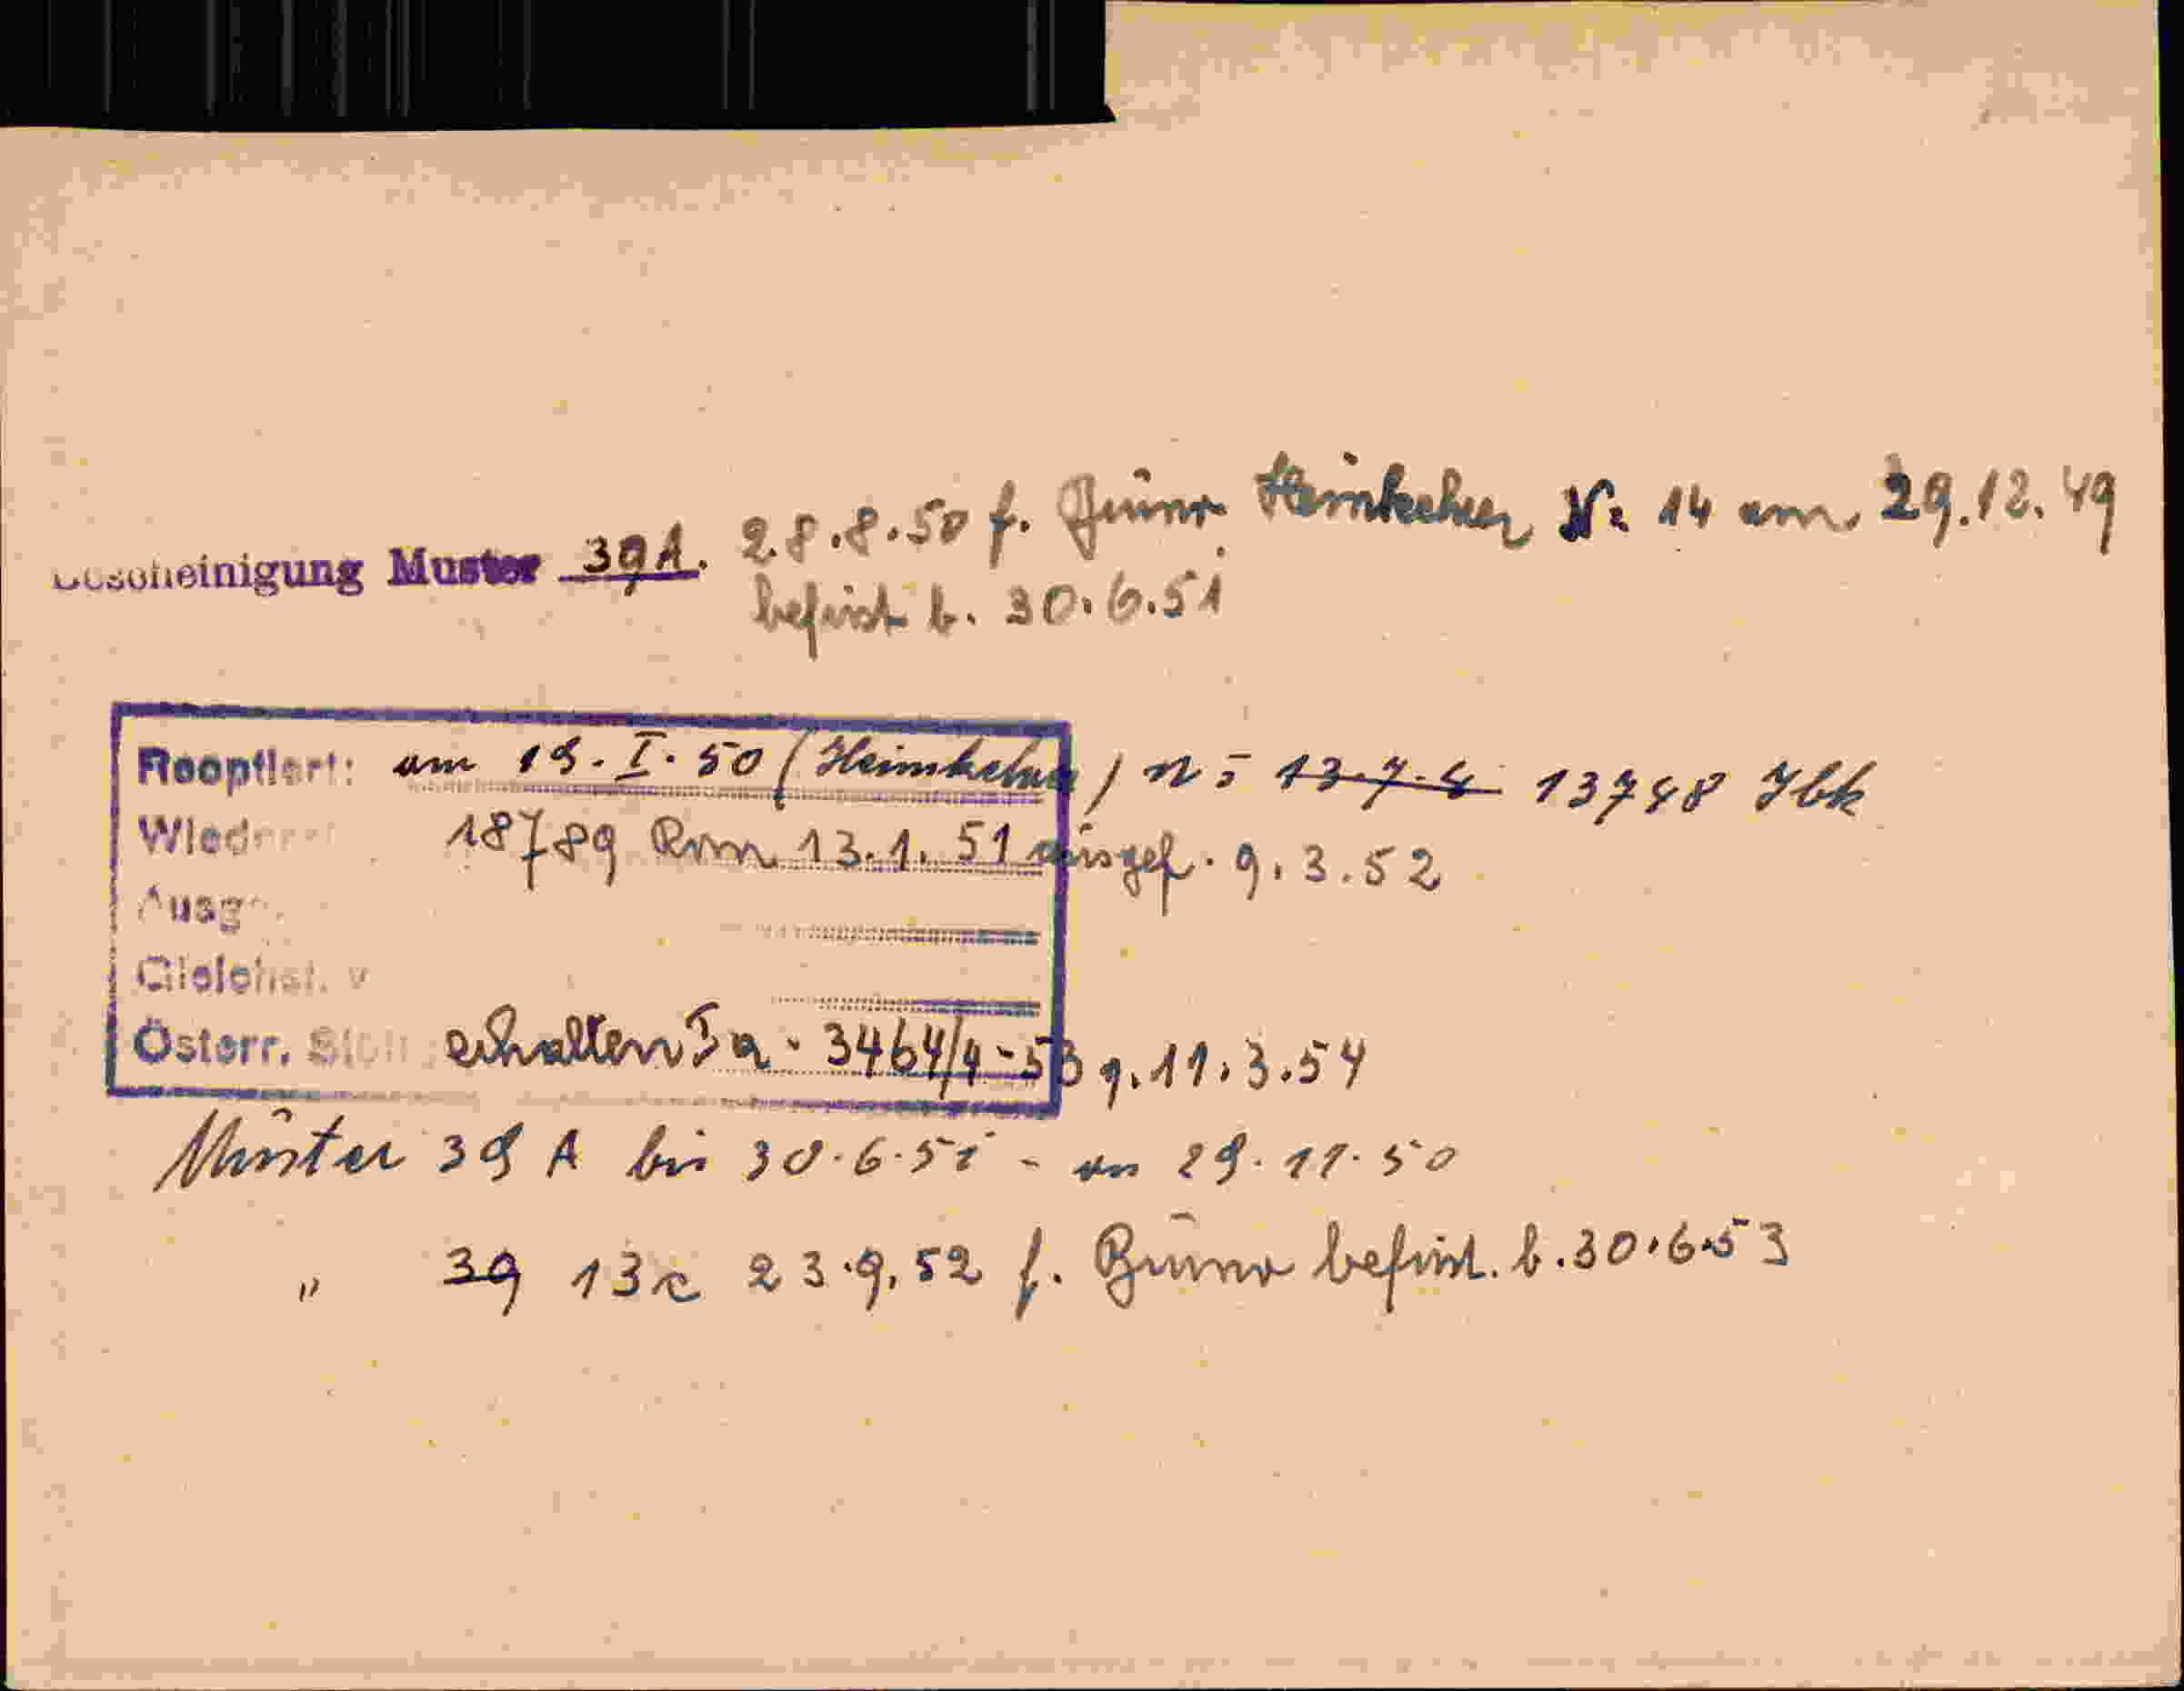 Bescheinigung Muster 39A. 28.8.50 f. Heimkehrer Nr 14 am 29.12.49
befrist b. 30.6.51
Reoptiert: am 19.I.50 (Heimkehrer) n = 13.7.4 13748 Jbk
18789 Rom 13.1.51 ausgef. 9.3.52
Ausg
Gleichst. v
Österr. erhalten Ia - 3464/4-53 g. 11.3.54
Muster 39 A bis 30.6.51 - am 29.11.50
" 39 13c 23.9.52 f. befrist. b. 30.6.53